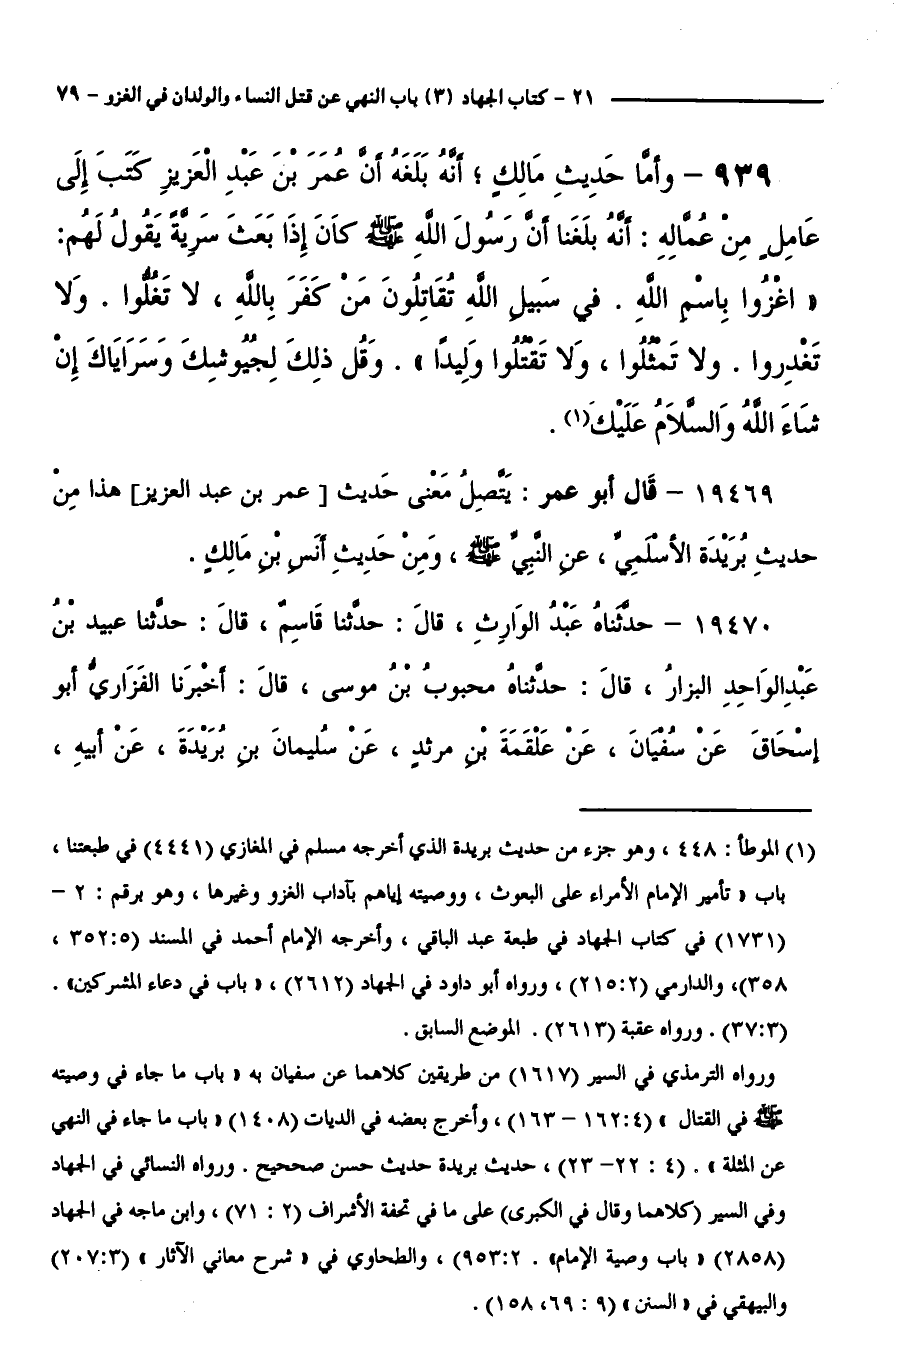 ٢١ - كتاب الجهاد (٣) باب النهي عن قتل النساء والولدان في الغزو - ٧٩
٩٣٩ - وأمَّا حَدِيثِ مَالِكٍ ؛ أَنَّهُ بَلَغَهُ أَنَّ عُمَرَ بْنَ عَبْدِ الْعَزِيزِ كَتَبَ إِلَى
عَامِلٍ مِنْ عُمَّالِهِ : أَنَّهُ بَلَغَنا أَنَّ رَسُولَ اللَّهِ ﷺ كانَ إِذَا بَعَثَ سَرِيَّةً يَقُولُ لَهُم:
« اغْزُوا بِاسْمِ اللَّهِ . في سَبِيلِ اللَّهِ تُقَاتِلُونَ مَنْ كَفَرَ بِاللَّهِ ، لا تَغُلُّوا . وَلا
تَغْدِروا . ولا تَمثِّلُوا ، وَلا تَقْتُلُوا وَلِيدًا » . وَقُل ذلِكَ لِجُيُوشِكَ وَسَرَايَاكَ إِنْ
شَاءَ اللَّهُ وَالسَّلَامُ عَلَيْكَ(١) .
١٩٤٦٩ - قَال أبو عمر : يَتَّصِلُ مَعْنى حَديث [ عمر بن عبد العزيز] هذا مِنْ
حديثِ بُرَيْدَة الأسْلَمِيِّ ، عنِ النَّبِيِّ ﷺ ، وَمِنْ حَدِيثِ أَنَسِ بْنِ مَالِكٍ .
١٩٤٧٠ - حدَّثَناهُ عَبْدُ الوَارِثِ ، قالَ : حدَّثنا قَاسِمٌ ، قالَ : حدَّثنا عبيد بْنُ
عَبْدِالوَاحِدِ البزارُ ، قالَ : حدثناهُ محبوبُ بْنُ موسى ، قالَ : أخْبرَنا الفَزَارِيُّ أبو
إِسْحَاقَ عَنْ سُفْيَانَ ، عَنْ عَلْقَمَةَ بْنِ مرثدٍ ، عَنْ سُليمانَ بنِ بُرَيْدَةَ ، عَنْ أبيهِ ،
(١) الموطأ : ٤٤٨ ، وهو جزء من حديث بريدة الذي أخرجه مسلم في المغازي (٤٤٤١) في طبعتنا ،
باب « تأمير الإمام الأمراء على البعوث ، ووصيته إياهم بآداب الغزو وغيرها ، وهو برقم : ٢ -
(١٧٣١) في كتاب الجهاد في طبعة عبد الباقي ، وأخرجه الإمام أحمد في المسند (٣٥٢:٥ ،
٣٥٨)، والدارمي (٢١٥:٢) ، ورواه أبو داود في الجهاد (٢٦١٢) ، « باب في دعاء المشركين» .
(٣٧:٣) . ورواه عقبة (٢٦١٣) . الموضع السابق .
ورواه الترمذي في السير (١٦١٧) من طريقين كلاهما عن سفيان به « باب ما جاء في وصيته
ﷺ في القتال » (١٦٢:٤ - ١٦٣) ، وأخرج بعضه في الديات (١٤٠٨) « باب ما جاء في النهي
عن المثلة » . (٤ : ٢٢- ٢٣) ، حديث بريدة حديث حسن صححيح . ورواه النسائي في الجهاد
وفي السير (كلاهما وقال في الكبرى) على ما في تحفة الأشراف (٢ : ٧١) ، وابن ماجه في الجهاد
(٢٨٥٨) « باب وصية الإمام» . ٩٥٣:٢) ، والطحاوي في « شرح معاني الآثار » (٢٠٧:٣)
والبيهقي في « السنن » (٩ : ٦٩، ١٥٨) .